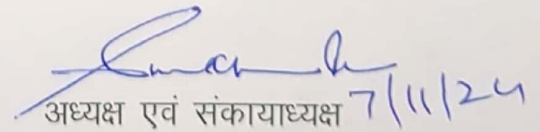 अध्यक्ष एवं संकायाध्यक्ष 7/11/24